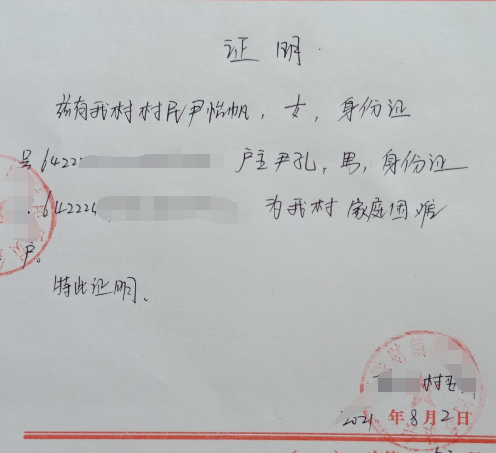 证明
兹有我村村民尹怡帆，女，身份证
号64222 户主尹孔，男，身份证
642224 为我村家庭困难
户。
特此证明。
镇
村
2021年8月2日